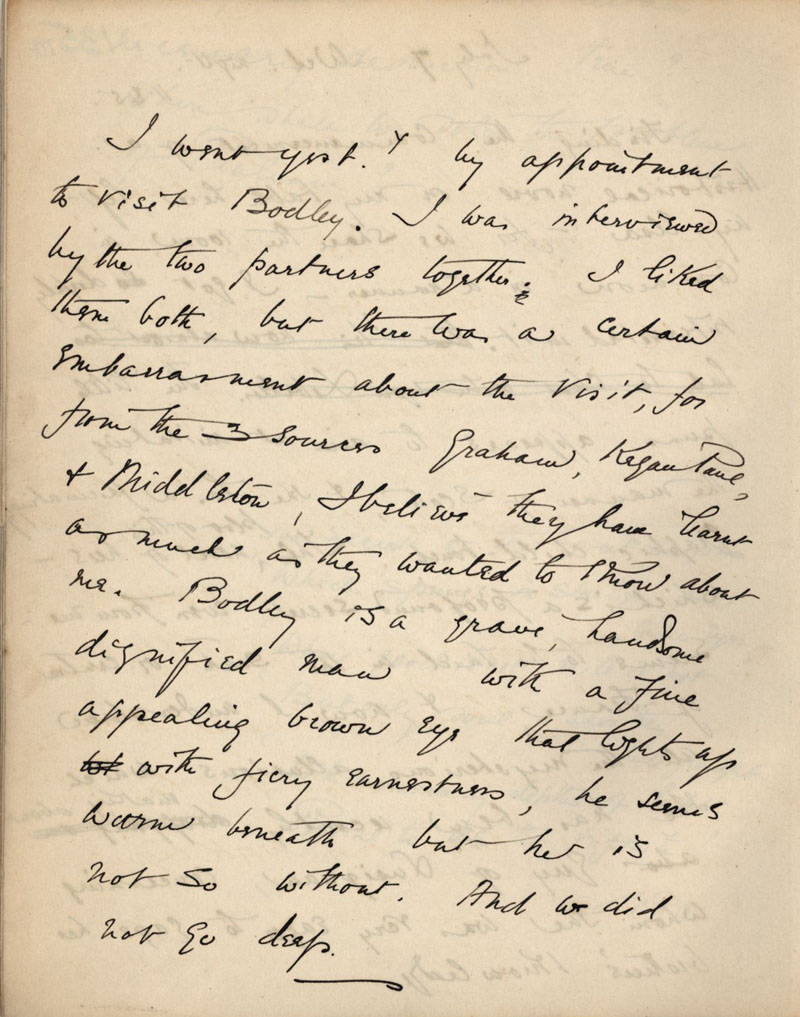 I went yest.y by appointment
to visit Bodley. I was interviewed
by the two partners together. I liked
them both, but there was a certain
embarrasment about the visit, for
from the 3 sources Graham, Kegan Paul,
& Middleton, I believe they have learnt
as much as they wanted to know about
me. Bodley is a grave, handsome
dignified man with a fine
appealing brown eye that lights up
with fiery earnestness, he seems
warm beneath but he is
not so without. And we did
not go deep.